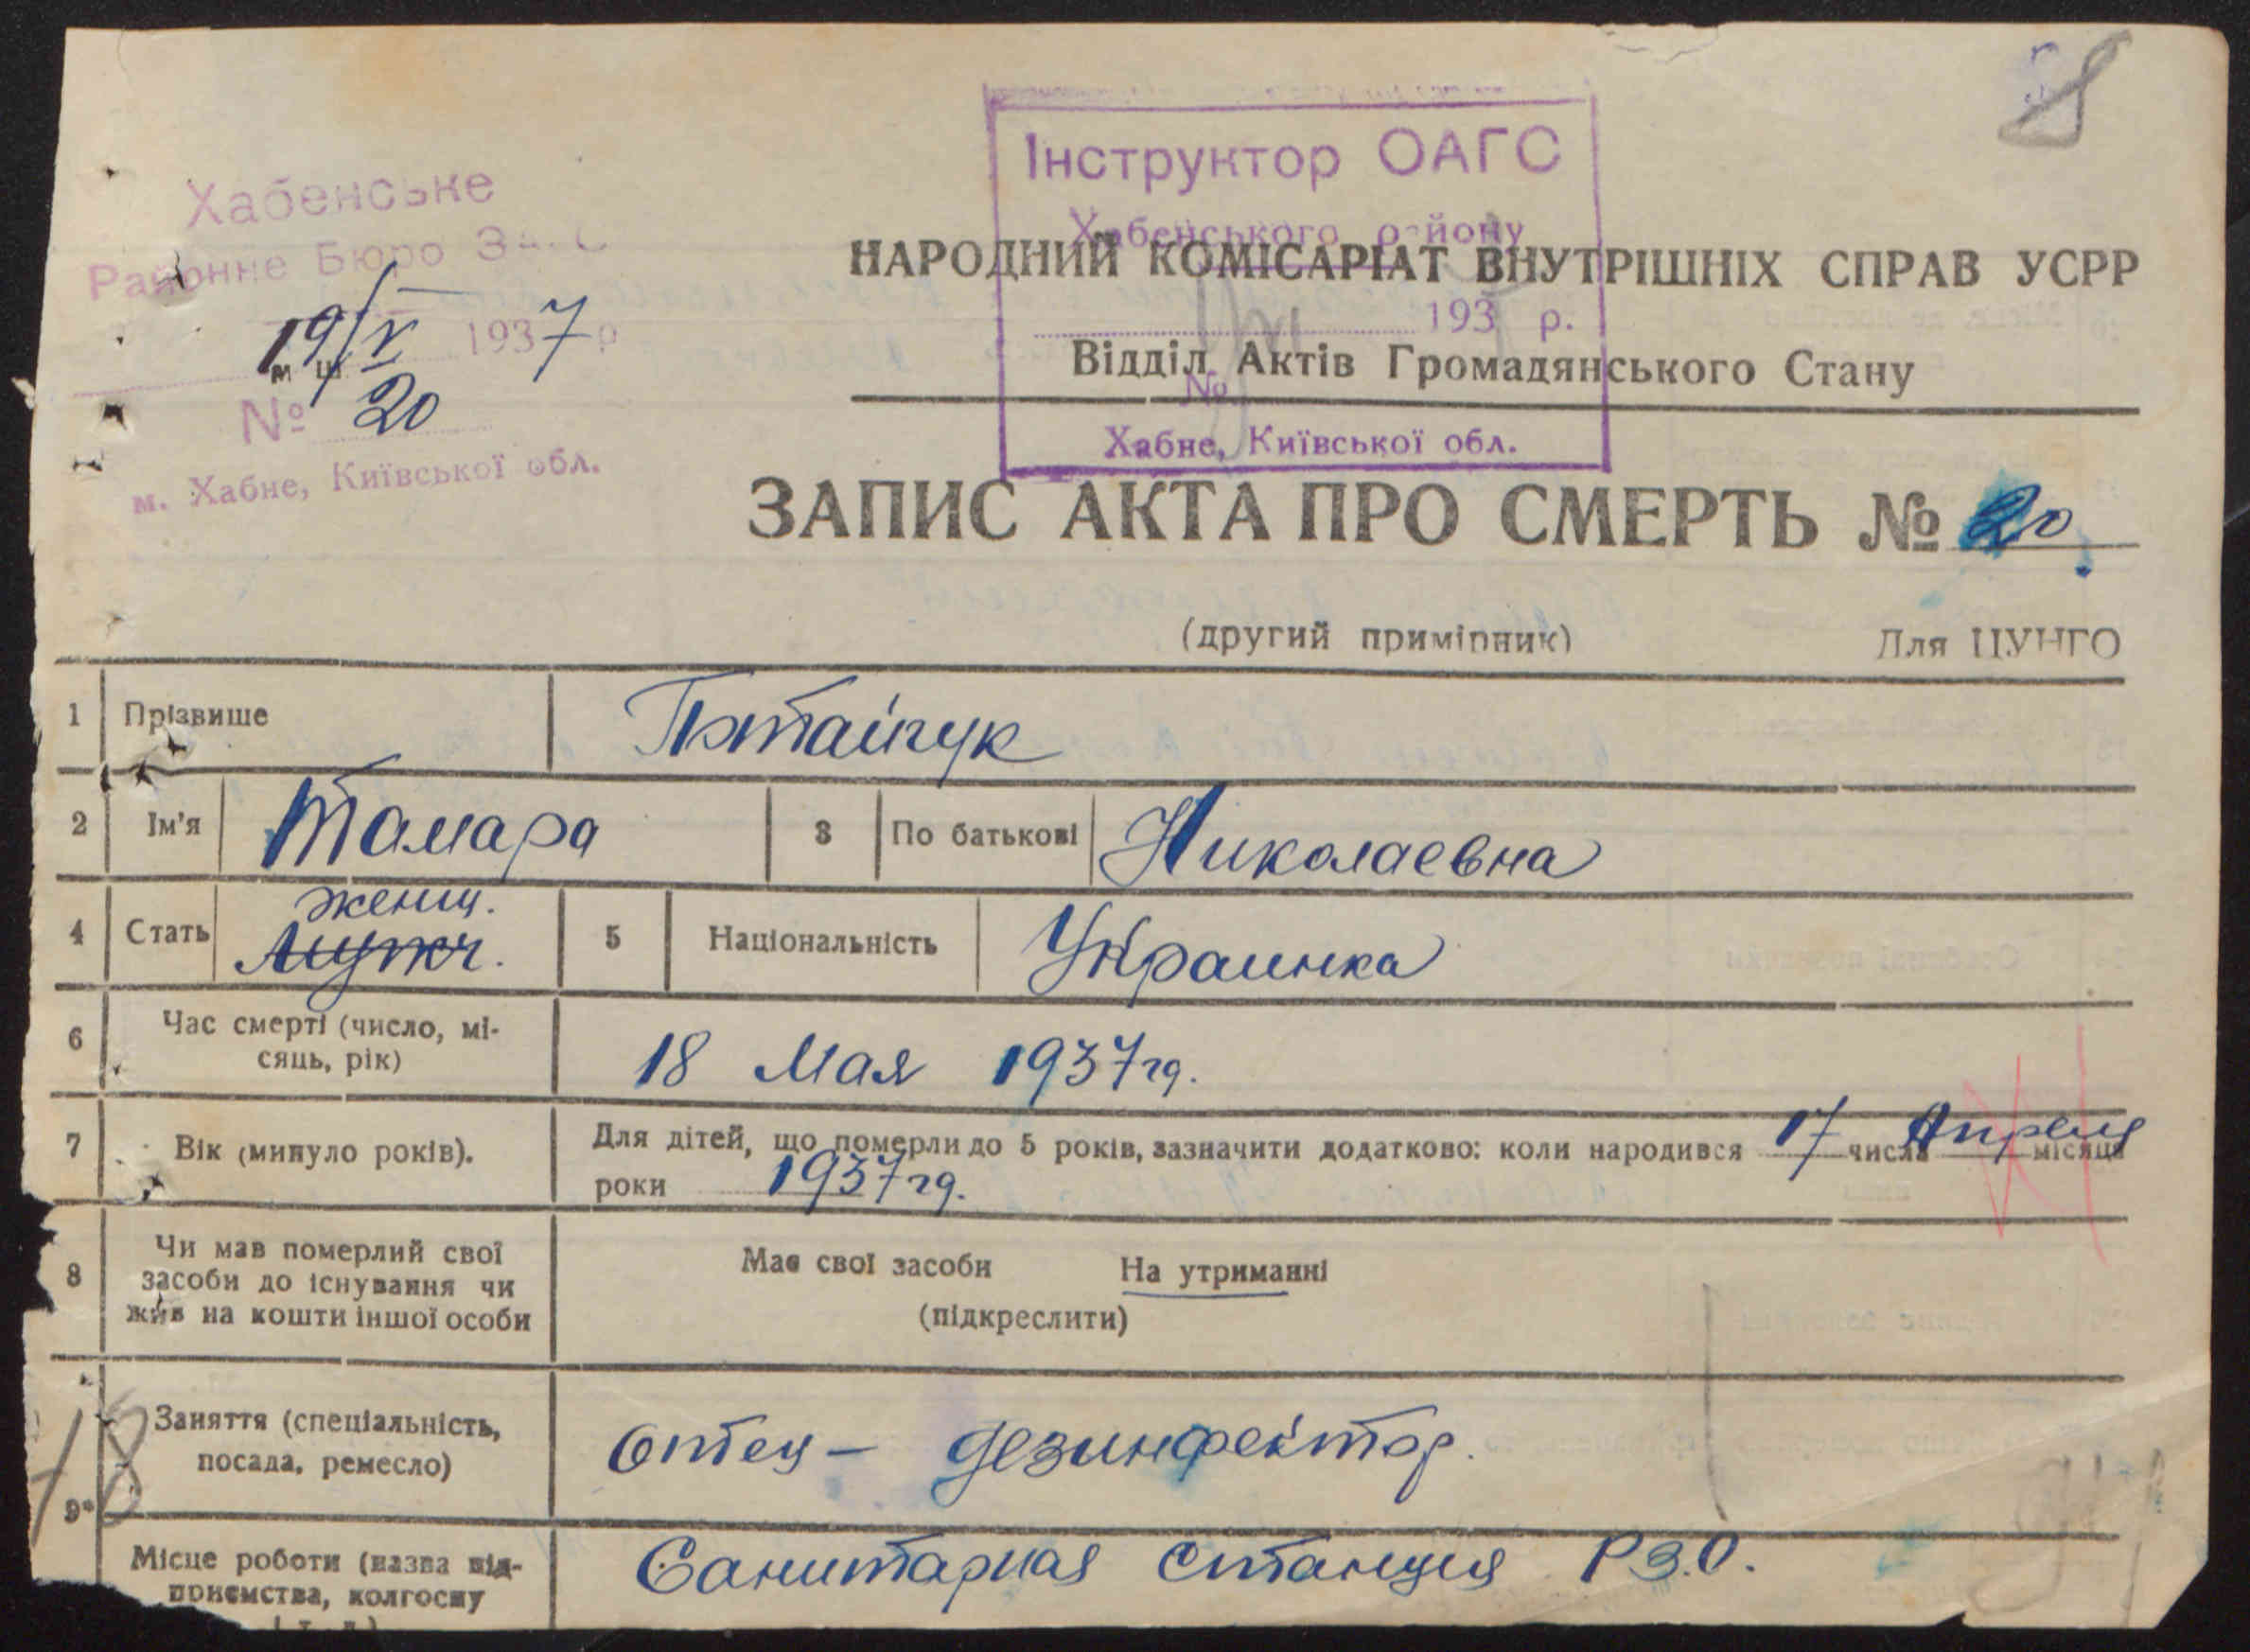 Хабенське
Районне Бюро
19/V 1937 р
№ 20
м. Хабне, Київської обл.
Інструктор ОАГС
Хабенського району
193 р.
№
Хабне, Київської обл.
НАРОДНИЙ КОМІСАРІАТ ВНУТРІШНІХ СПРАВ УСРР
Відділ Актів Громадянського Стану
ЗАПИС АКТА ПРО СМЕРТЬ № 20
(другий примірник) Для ЦУНГО
1 Прізвище Пэтайчук
2 Ім'я Тамара 3 По батькові Николаевна
4 Стать женщ. 5 Національність Украинка
мужч.
6 Час смерті (число, мі-
сяць, рік) 18 Мая 1937 гд.
7 Вік (минуло років). Для дітей, що померли до 5 років, зазначити додатково: коли народився 17 числа Апреля місяця
роки 1937 гд.
8 Чи мав померлий свої
засоби до існування чи
жив на кошти іншої особи
Має свої засоби На утриманні
(підкреслити)
9* Заняття (спеціальність,
посада, ремесло) Отец – дезинфектор.
Місце роботи (назва під-
приємства, колгоспу
Санитарная станция РЗ.О.
18